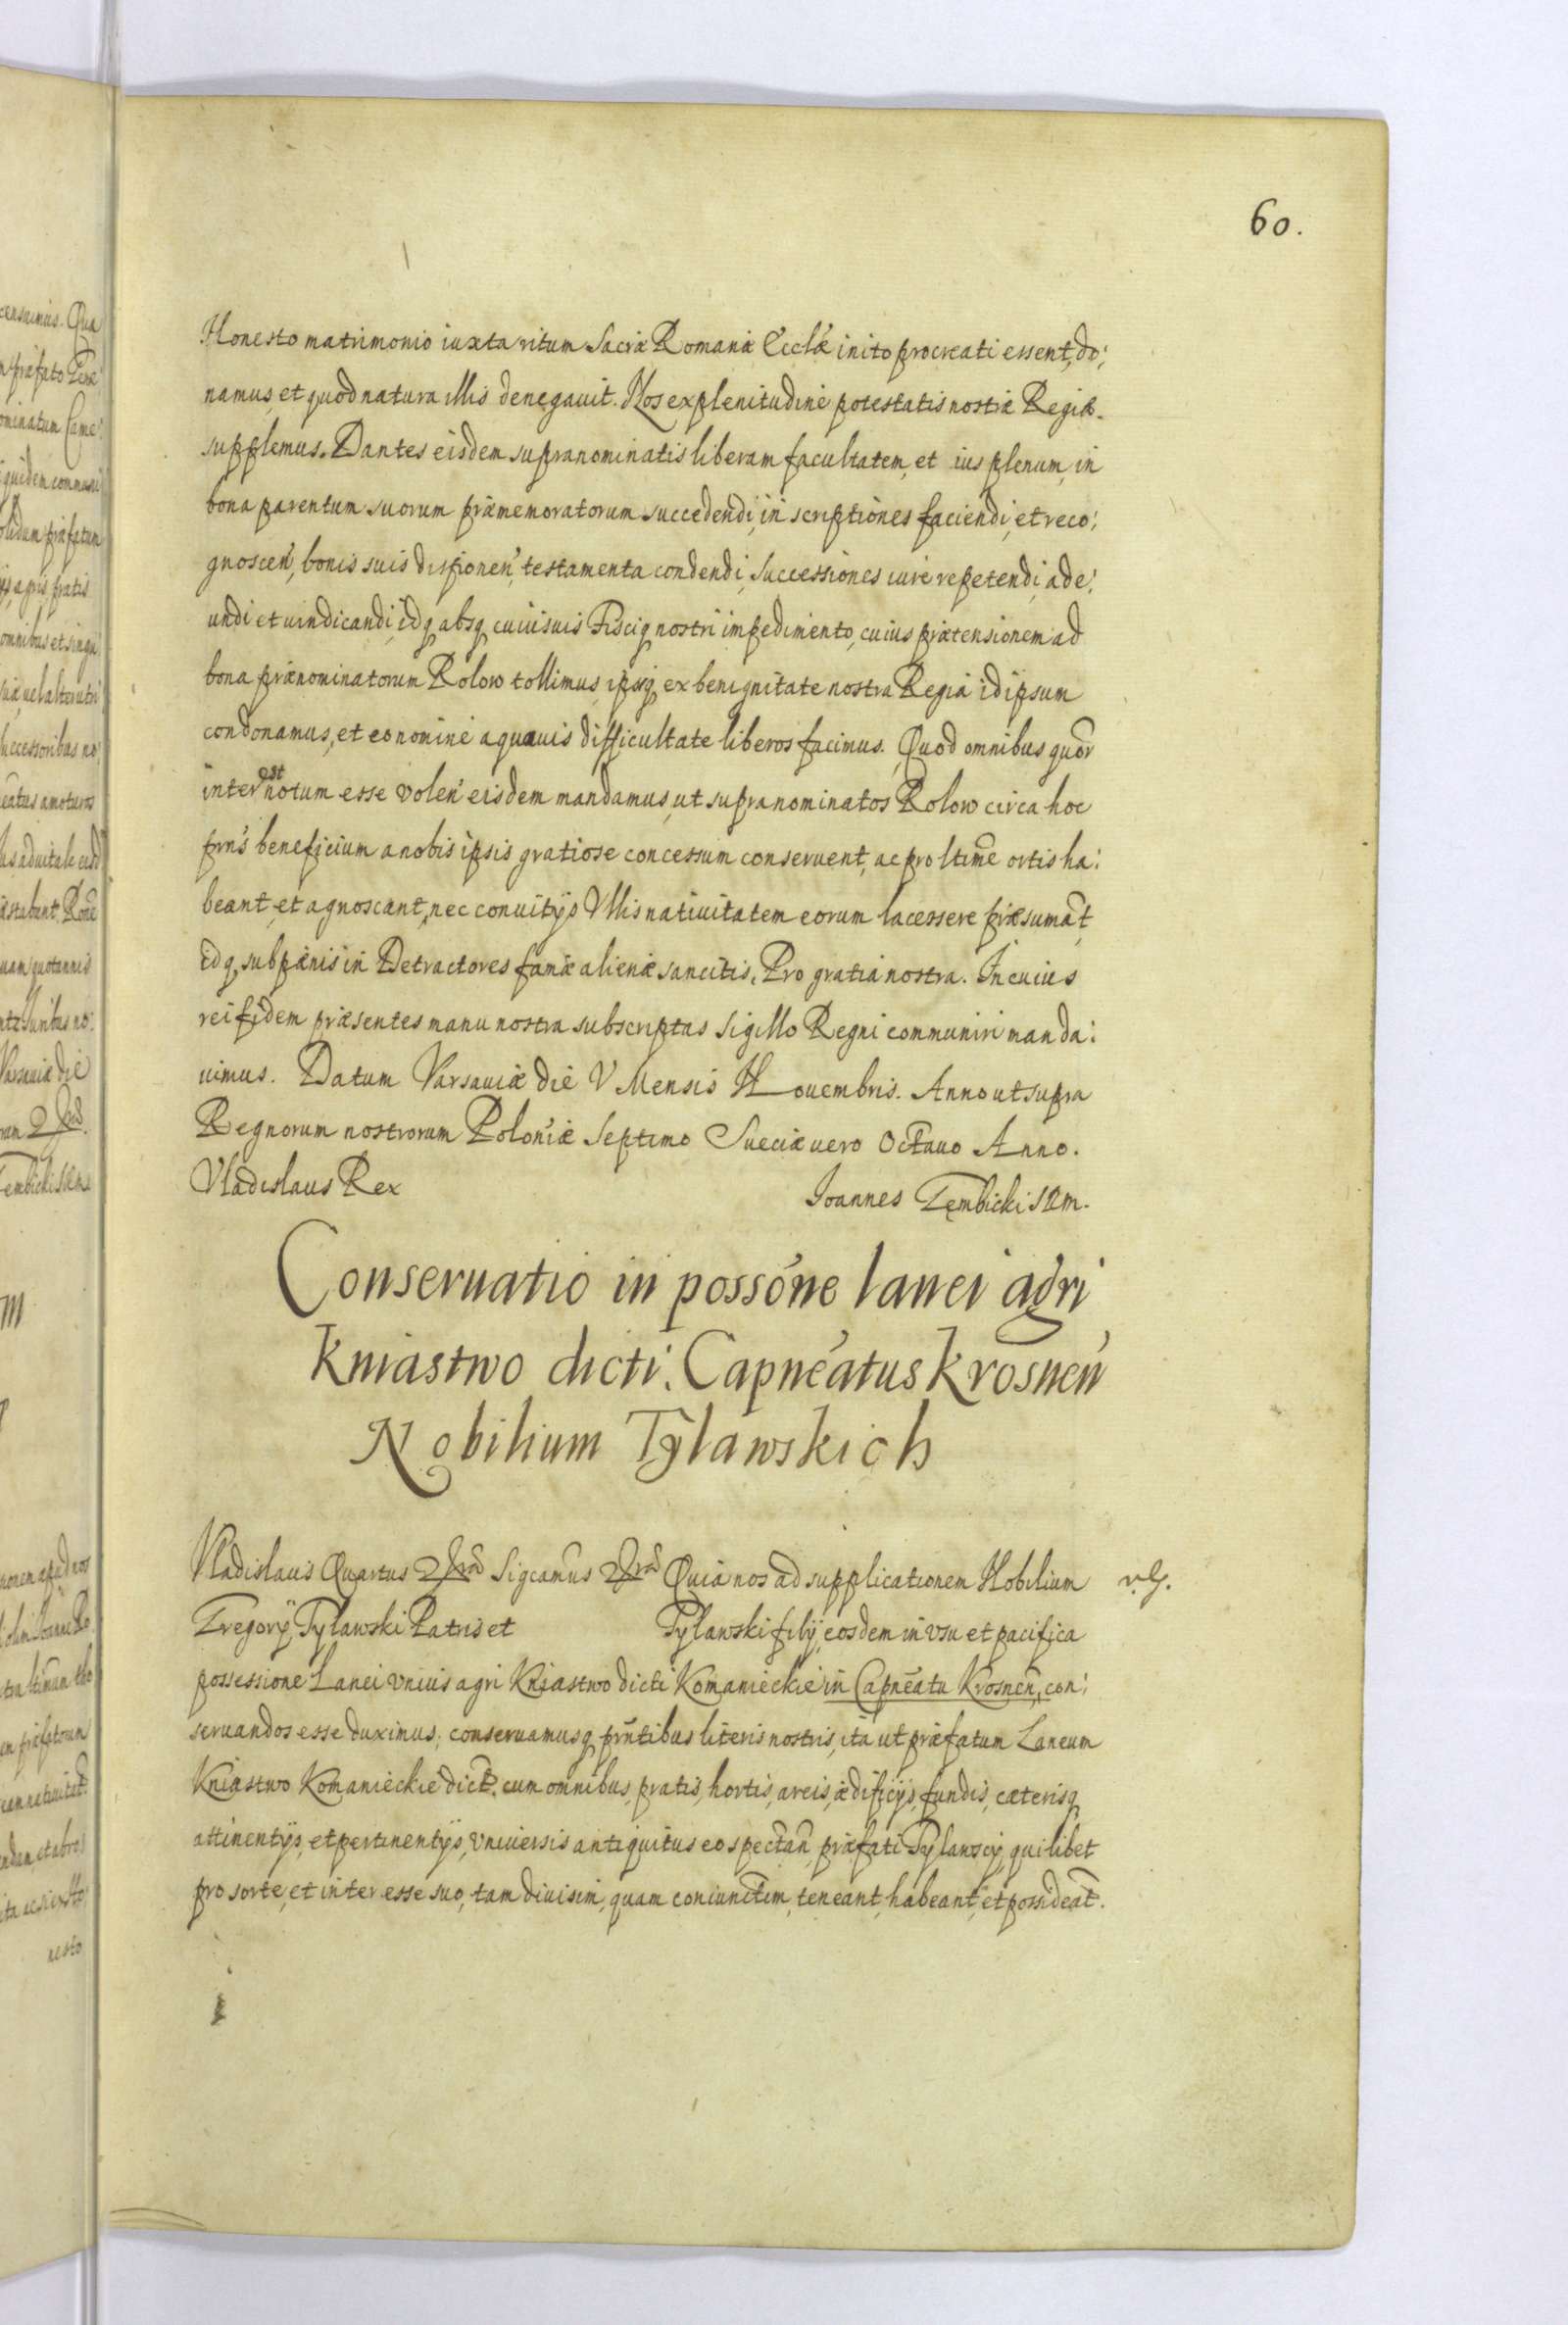 60.
Honesto matrimonio iuxta ritum Sacræ Romanæ Eccłæ inito procreati essent, do:
namus, et quod natura illis denegauit. Nos ex plenitudine potestatis nostræ Regiæ
supplemus. Dantes eisdem supranominatis liberam facultatem, et ius plenum, in
bona parentum suorum præmemoratorum succedendi, inscriptiones faciendi, et reco:
gnoscen, bonis suis disponen, testamenta condendi, Successiones iure repetendi, ade:
undi et uindicandi, idq absq cuiusuis Fisciq nostri impedimento, cuius prætensionem ad
bona prænominatorum Rolow tollimus, ipsisq ex benignitate nostra Regia idipsum
condonamus, et eo nomine a quauis difficultate liberos facimus. Quod omnibus quor
interest notum esse volen eisdem mandamus, ut supranominatos Rolow circa hoc
prns beneficium a nobis ipsis gratiose concessum conseruent, ac pro ltime ortis ha:
beant, et agnoscant, nec conuitijs Vllis natiuitatem eorum lacessere præsumat,
idq, sub pænis in Detractores famæ alienæ sancitis, Pro gratia nostra. In cuius
rei fidem præsentes manu nostra subscriptas Sigillo Regni communiri manda:
uimus. Datum Varsauiæ die V Mensis Nouembris. Anno ut supra
Regnorum nostrorum Poloniæ Septimo Sueciæ uero Octauo Anno.
Vladislaus Rex Joannes Gembicki SRM.
Conseruatio in possone lanei agri
Kniastwo dicti. Capneatus Krosnen
Nobilium Tylawskich
Vladislaus Quartus Sigcamus Quia nos ad supplicationem Nobilium
Gregorij Tylawski Patris et Tylawski filij, eosdem in vsu et pacifica
possessione Lanei vnius agri Kniastwo dicti Komanieckie in Capneatu Krosnen, con:
seruandos esse duximus, conseruamusq prntibus literis nostris, ita ut præfatum Laneum
Kniastwo Komanieckie dict. cum omnibus, pratis, hortis, areis, ædificijs, fundis, cæterisq
attinentijs, et pertinentijs, vniuersis antiquitus eo spectan, præfati Tylawscij, quilibet
pro sorte, et interesse suo, tam diuisim, quam coniunctim, teneant, habeant, et possideat.